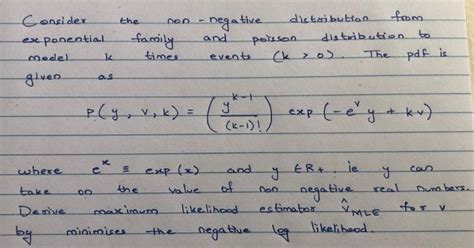 Consider the non-negative distribution from
exponential family and poisson distribution to
model k times events (k > 0). The pdf is
given as
P(y, v, k) = (y^{k-1}/(k-1)!) exp (-e^v y + kv)
where e^x ≡ exp(x) and y ∈ R+ ie y can
take on the value of non negative real numbers.
Derive maximum likelihood estimator v̂_MLE for v
by minimises the negative log likelihood.